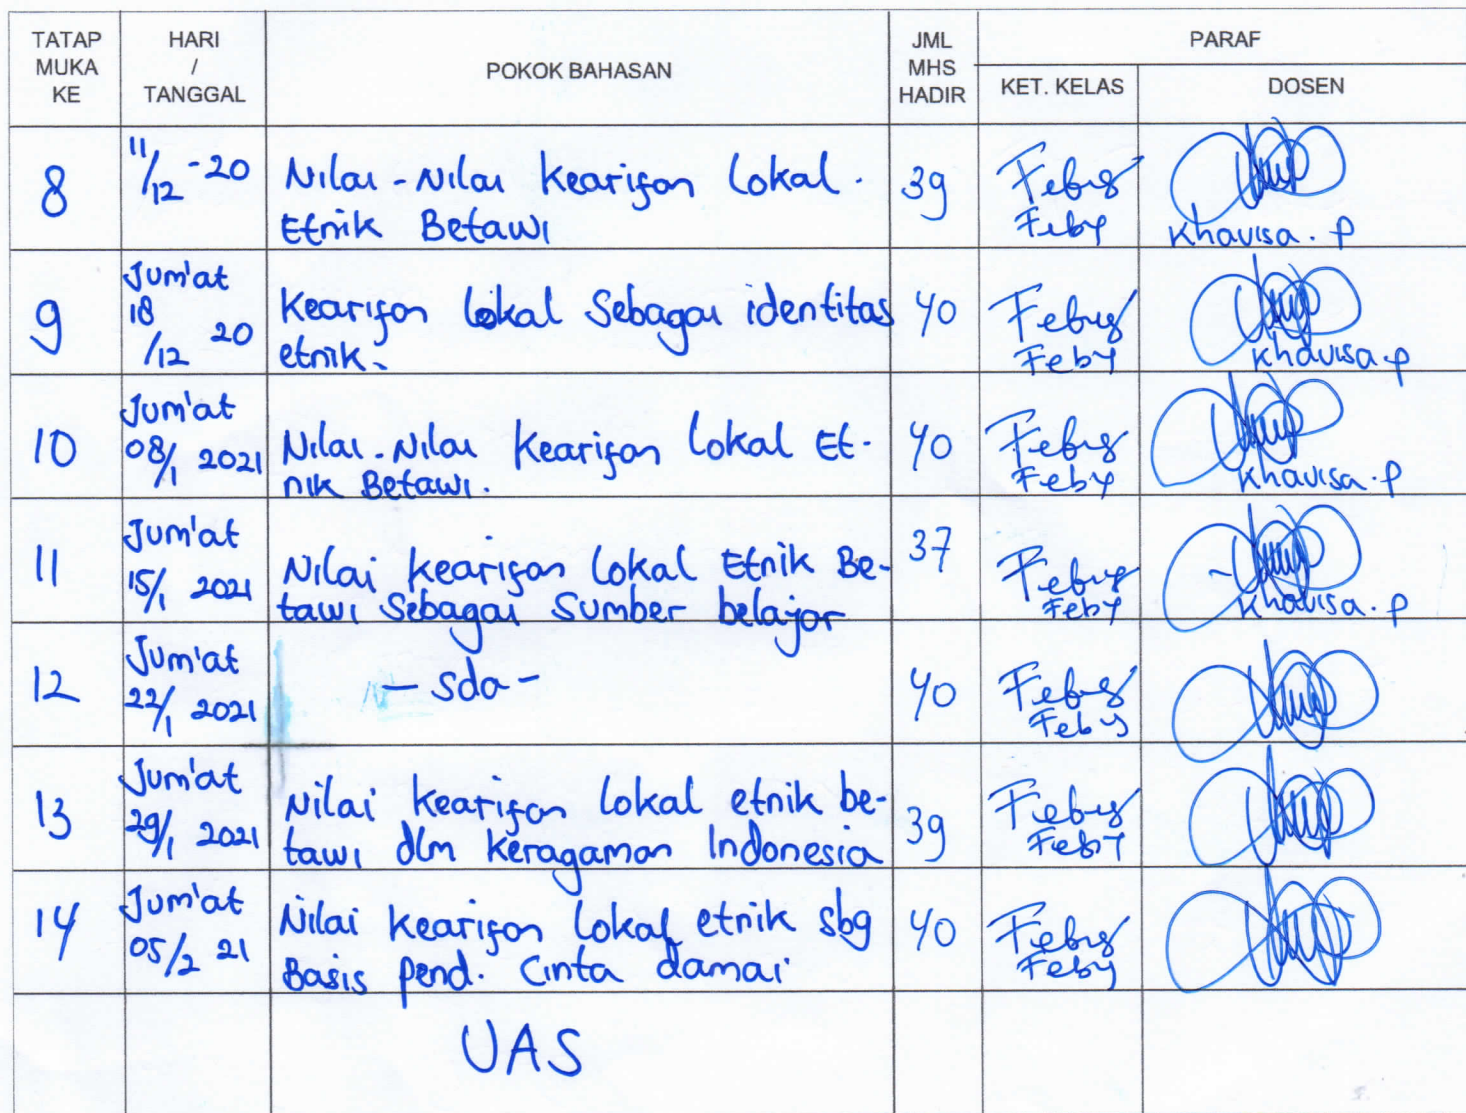 TATAP MUKA KE
HARI / TANGGAL
POKOK BAHASAN
JML MHS HADIR
PARAF
KET. KELAS
DOSEN
8
11/12 - 20
Nilai - Nilai Kearifan Lokal.
Etnik Betawi
39
Feby
Feby
Khavisa. P
9
Jum'at
18/12 20
Kearifan lokal Sebagai identitas
etnik.
40
Feby
Feby
Khavisa. P
10
Jum'at
08/1 2021
Nilai. Nilai Kearifan Lokal Et-
nik Betawi.
40
Feby
Feby
Khavisa. P
11
Jum'at
15/1 2021
Nilai kearifan lokal Etnik Be-
tawi Sebagai Sumber belajar
37
Feby
Feby
Khavisa. P
12
Jum'at
22/1 2021
- sda -
40
Feby
Feby
13
Jum'at
29/1 2021
Nilai kearifan lokal etnik be-
tawi dlm keragaman Indonesia
39
Feby
Feby
14
Jum'at
05/2 21
Nilai kearifan lokal etnik sbg
Basis pend. Cinta damai
40
Feby
Feby
UAS